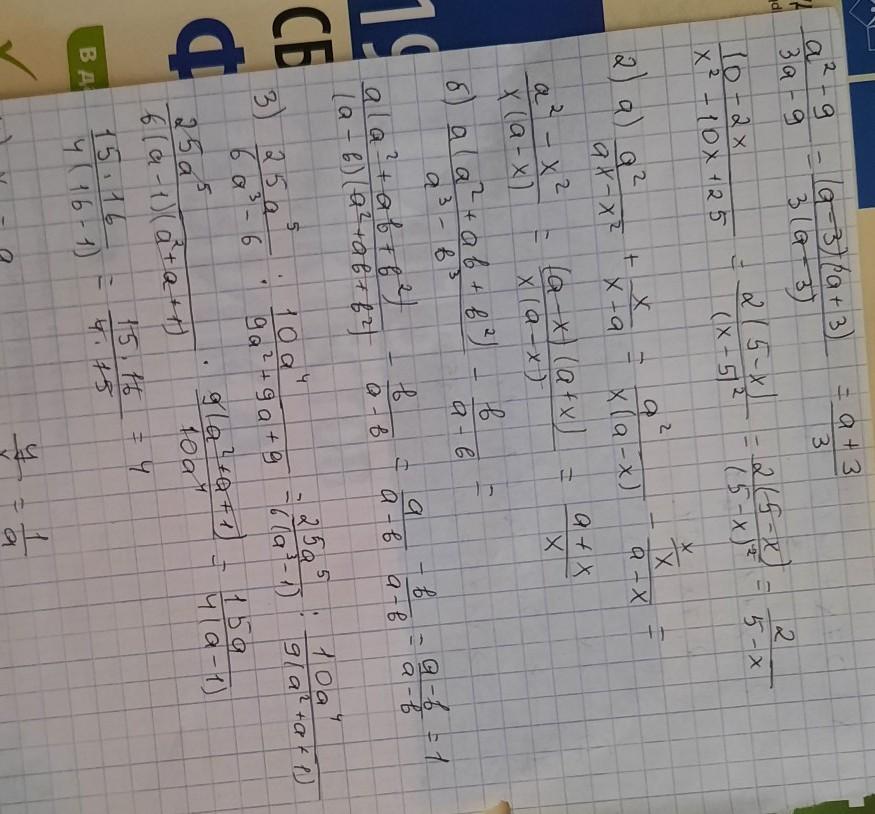 a² - 9 / 3a - 9 = (a-3)(a+3) / 3(a-3) = a+3 / 3
10 - 2x / x² - 10x + 25 = 2(5-x) / (x-5)² = 2(5-x) / (5-x)² = 2 / 5-x
2) а) a² / ax - x² + x / x-a = a² / x(a-x) - x x / a-x =
a² - x² / x(a-x) = (a-x)(a+x) / x(a-x) = a+x / x
б) a(a² + ab + b²) / a³ - b³ - b / a-b =
a(a² + ab + b²) / (a-b)(a² + ab + b²) - b / a-b = a / a-b - b / a-b = a-b / a-b = 1
3) 25a⁵ / 6a³ - 6 : 10a⁴ / 9a² + 9a + 9 = 25a⁵ / 6(a³-1) : 10a⁴ / 9(a²+a+1)
25a⁵ / 6(a-1)(a²+a+1) · 9(a²+a+1) / 10a⁴ = 15a / 4(a-1)
15·16 / 4(16-1) = 15·16 / 4·15 = 4
= 1 / a
19
СБ
Ф